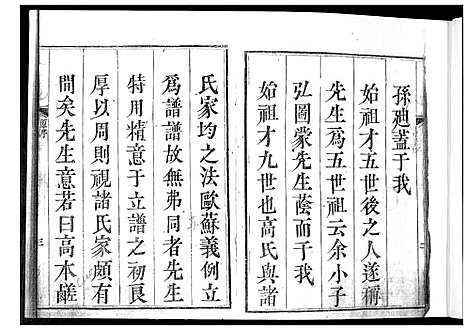 孫廸蓋于我
始祖才五世後之人遂稱
先生爲五世祖云余小子
弘圖蒙先生蔭而于我
始祖才九世也高氏與諸
氏家均之法歐蘇義例立
爲譜譜故無弗同者先生
特用精意于立譜之初良
厚以周則視諸氏家頗有
間矣先生意若曰高本鹺
三